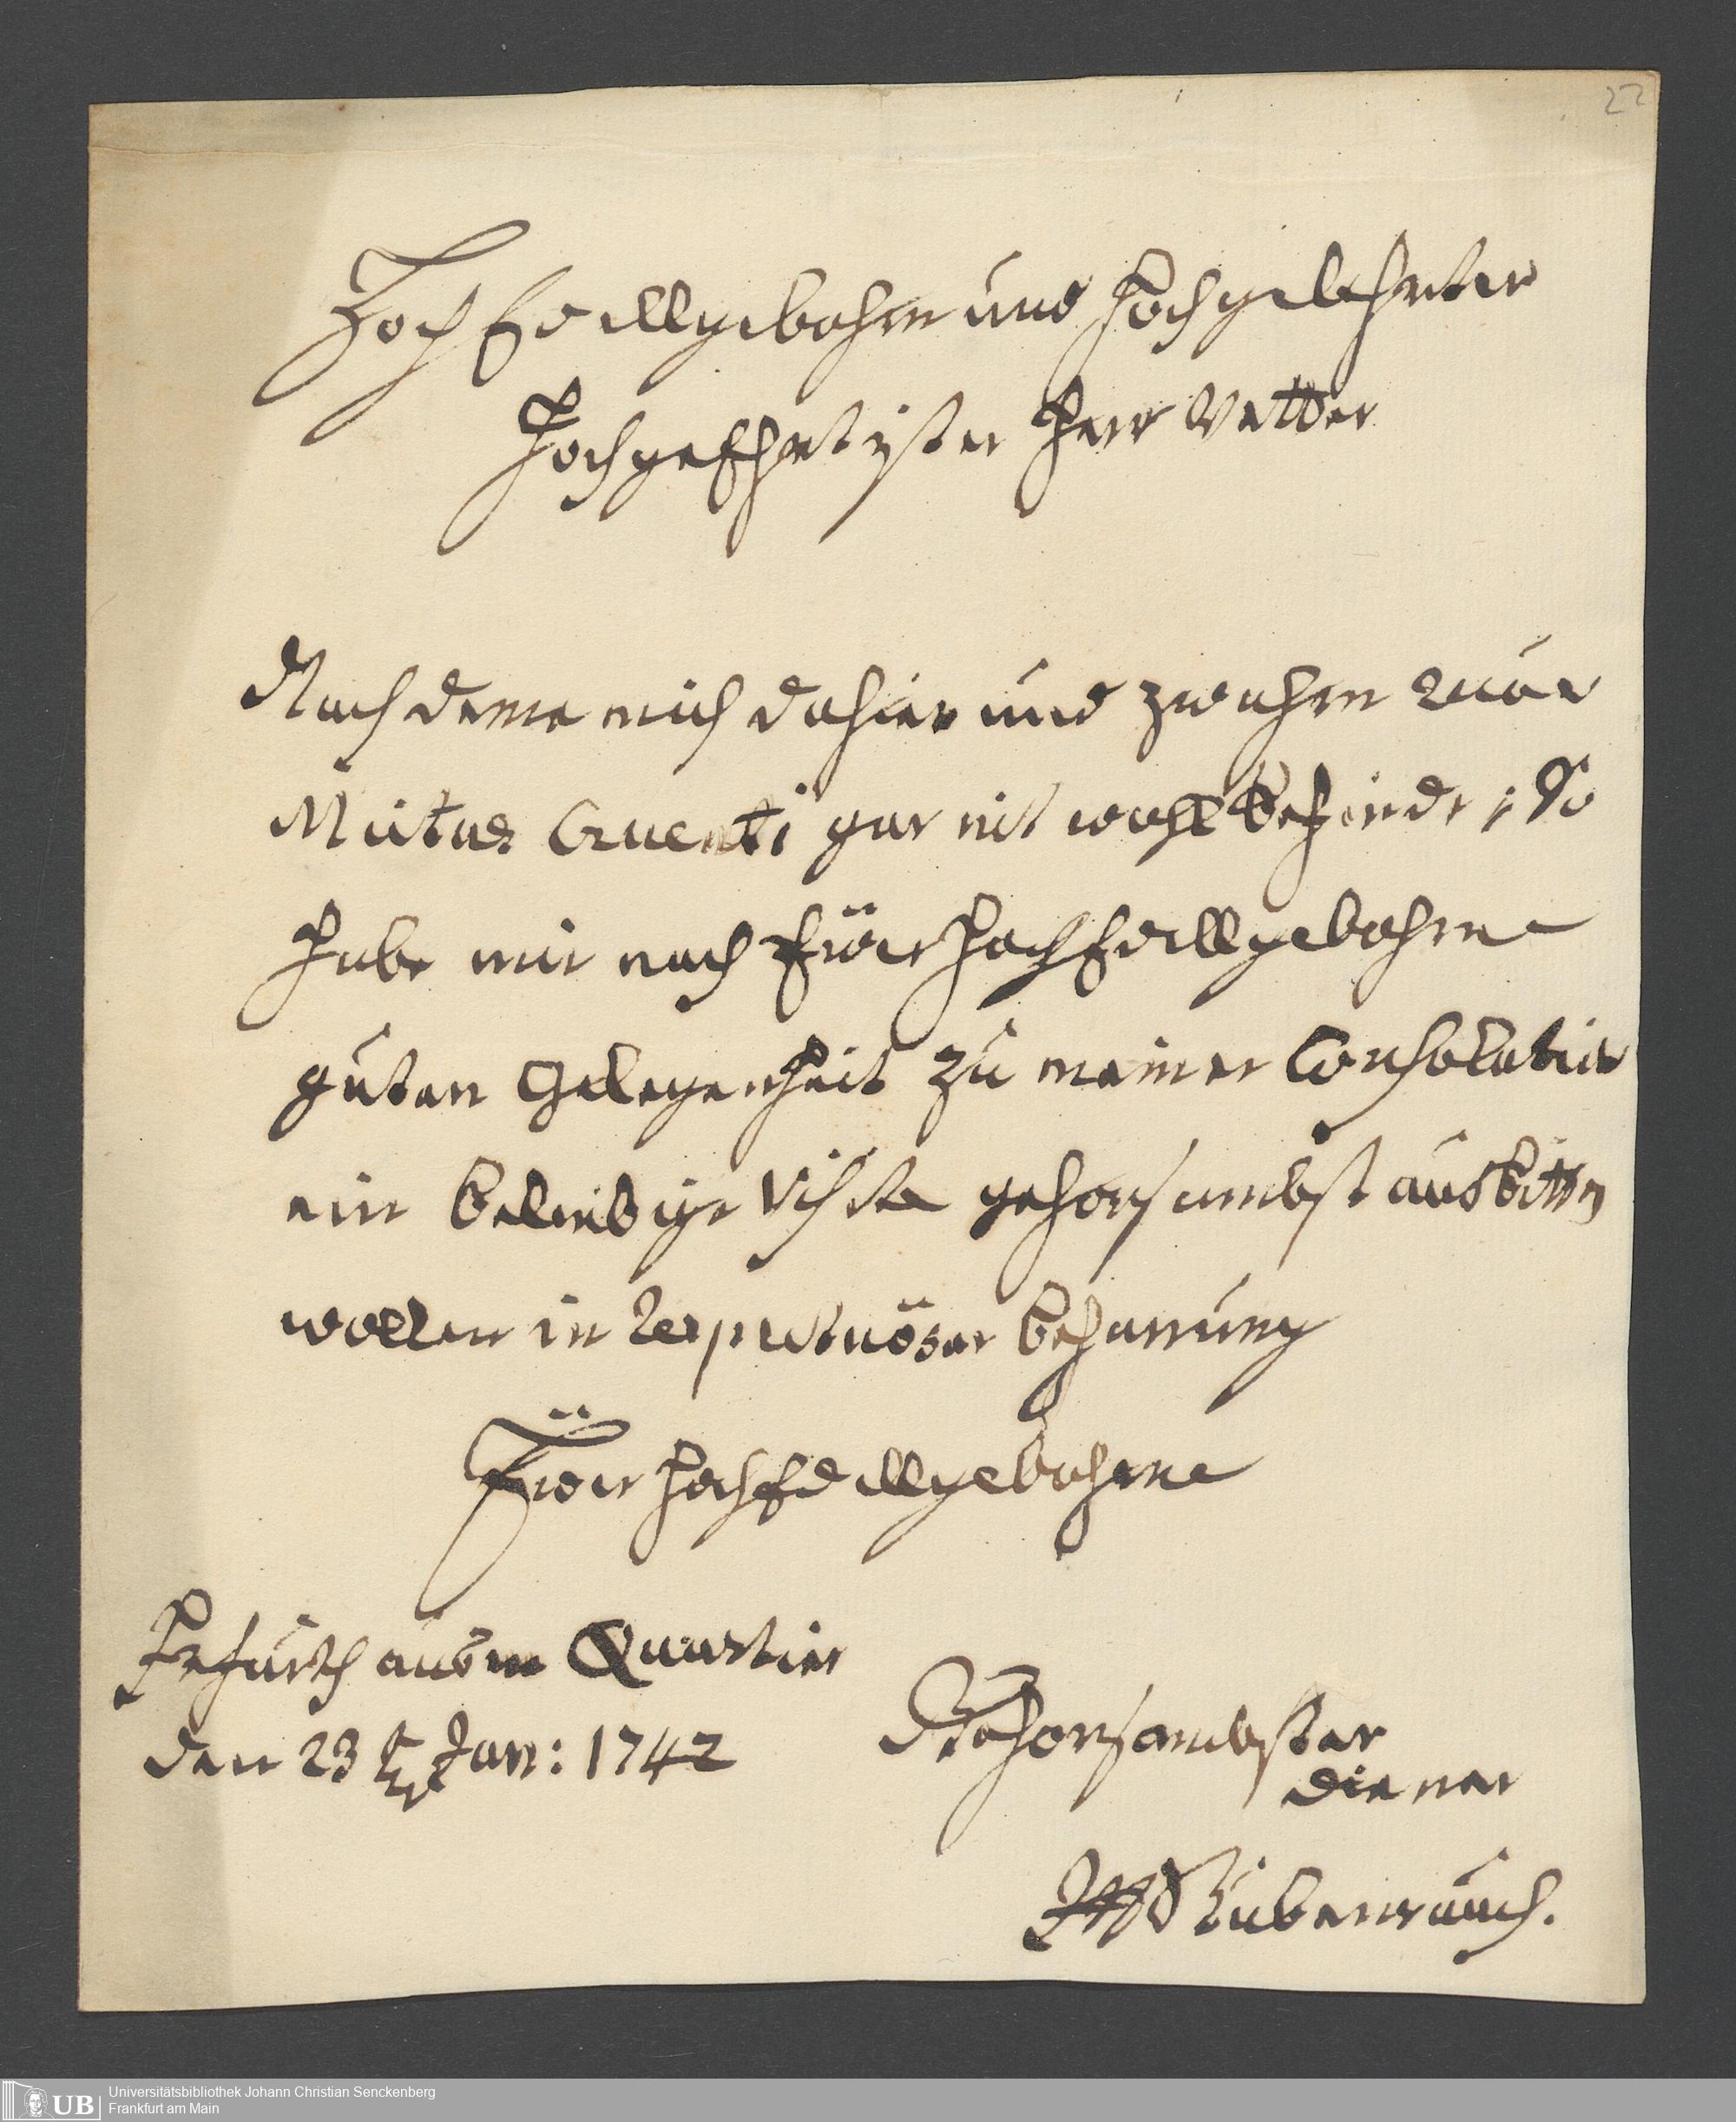 22
Hoch Edellgebohrn und Hochgelehrter
Hochgeehrtister Herr Vetter
Nach deme mich dahier und zwahrn
Mictus Cruenti gar nit wohl befinde; So
habe mir nach Eüer HochEdellgebohrne
guten Gelegenheit zu meiner Consolation
ein beliebige Visite gehorsambst ausbitten
wollen in respectuöser beharrung
Eüer HochEdellgebohrne
Frfurth ausm Quartier
den 23 t Jan: 1742
Gehorsambster
diener
Stubenrauch.
UB
Universitätsbibliothek Johann Christian Senckenberg
Frankfurt am Main